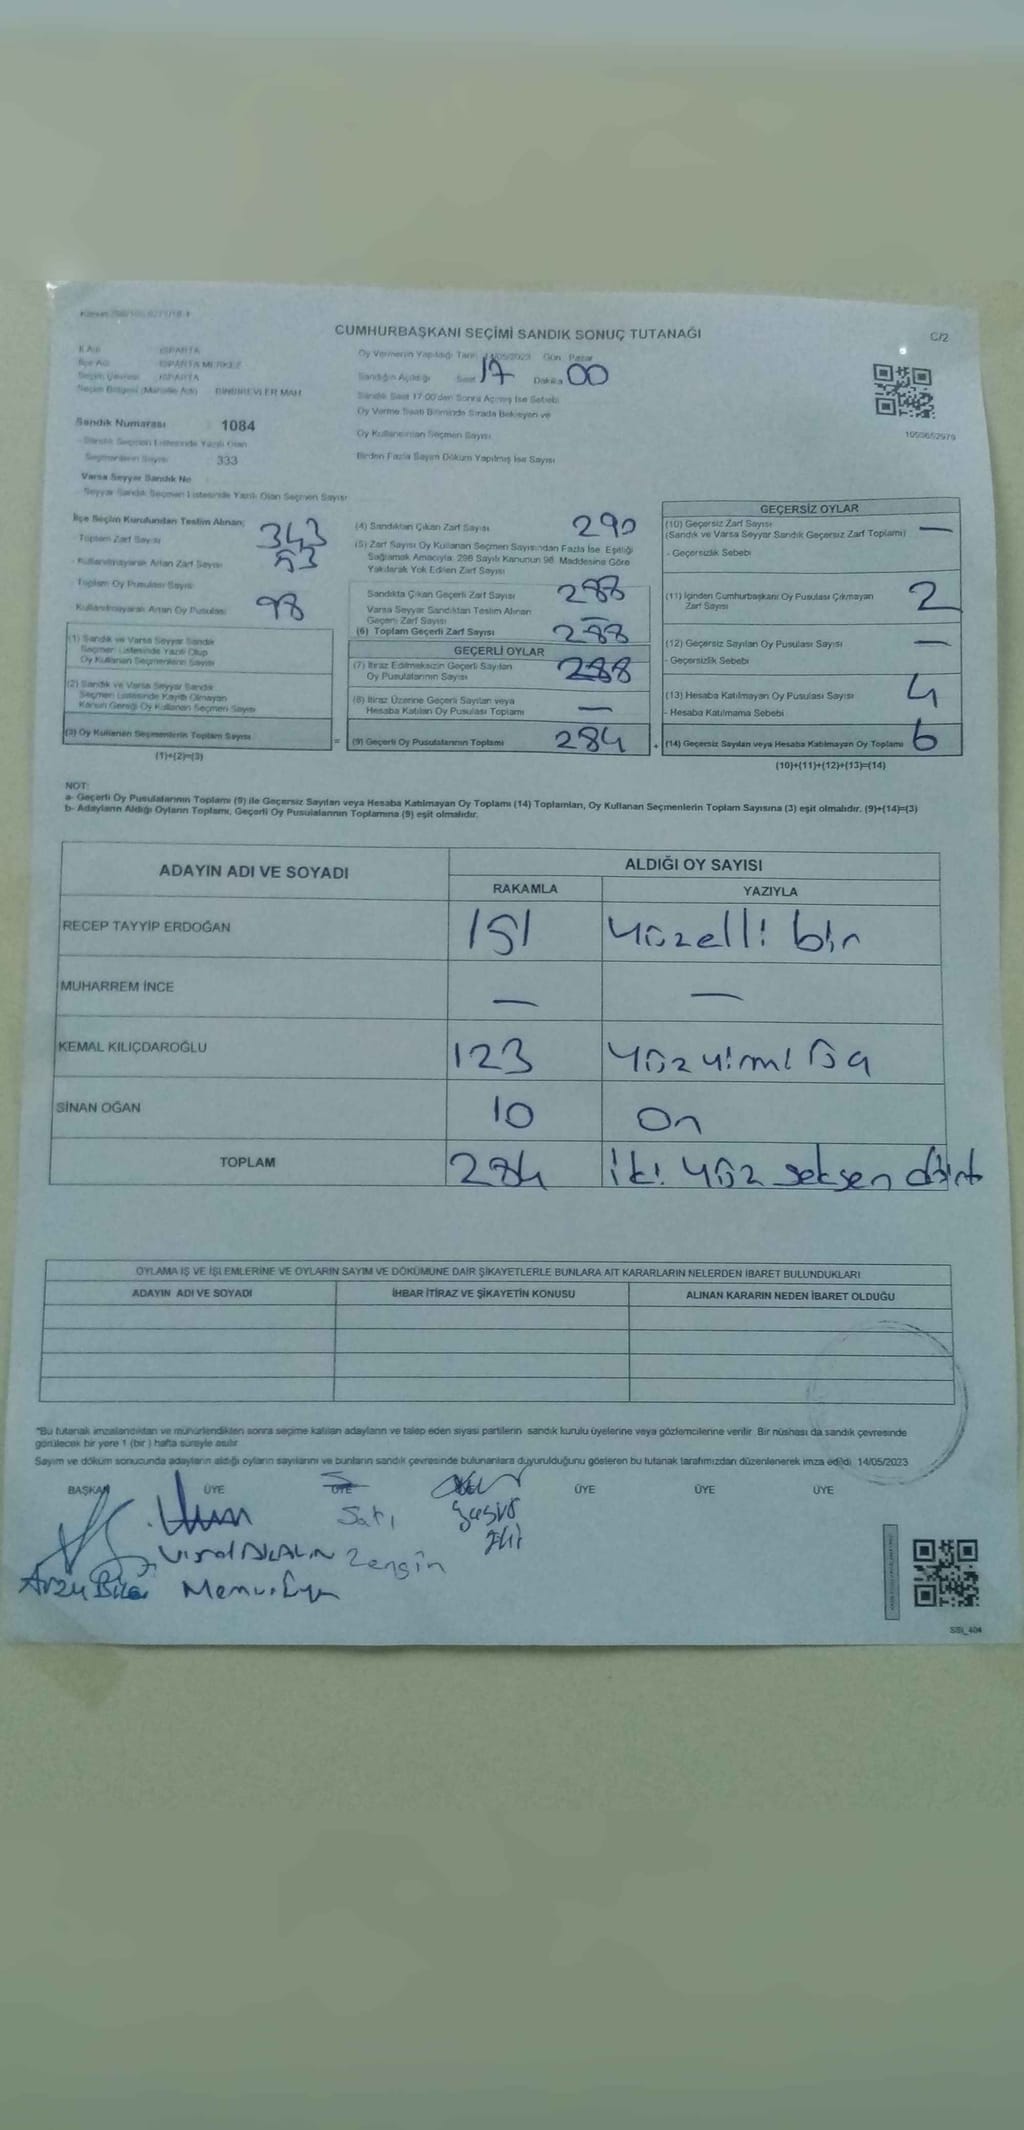 CUMHURBAŞKANI SEÇİMİ SANDIK SONUÇ TUTANAĞI
C/2
İl Adı ISPARTA
İlçe Adı ISPARTA MERKEZ
Seçim Çevresi ISPARTA
Seçim Bölgesi (Mahalle Adı) BİNBİREVLER MAH.
Oy Vermenin Yapıldığı Tarih 14/05/2023 Gün Pazar
Sandığın Açıldığı Saat 17 Dakika 00
Sandık Saat 17:00'den Sonra Açılmış İse Sebebi
Oy Verme Saati Bitiminde Sırada Bekleyen ve
Oy Kullandırılan Seçmen Sayısı
Birden Fazla Sayım Döküm Yapılmış İse Sayısı
1055652979
Sandık Numarası 1084
Sandık Seçmen Listesinde Yazılı Olan
Seçmenlerin Sayısı 333
Varsa Seyyar Sandık No
Seyyar Sandık Seçmen Listesinde Yazılı Olan Seçmen Sayısı
İlçe Seçim Kurulundan Teslim Alınan;
Toplam Zarf Sayısı 343
Kullanılmayarak Artan Zarf Sayısı 53
Toplam Oy Pusulası Sayısı
Kullanılmayarak Artan Oy Pusulası 98
(1) Sandık ve Varsa Seyyar Sandık
Seçmen Listesinde Yazılı Olup
Oy Kullanan Seçmenlerin Sayısı
(2) Sandık ve Varsa Seyyar Sandık
Seçmen Listesinde Kayıtlı Olmayan
Kanun Gereği Oy Kullanan Seçmen Sayısı
(3) Oy Kullanan Seçmenlerin Toplam Sayısı
(1)+(2)=(3)
(4) Sandıktan Çıkan Zarf Sayısı 290
(5) Zarf Sayısı Oy Kullanan Seçmen Sayısından Fazla İse, Eşitliği
Sağlamak Amacıyla, 298 Sayılı Kanunun 98. Maddesine Göre
Yakılarak Yok Edilen Zarf Sayısı
Sandıkta Çıkan Geçerli Zarf Sayısı 288
Varsa Seyyar Sandıktan Teslim Alınan
Geçerli Zarf Sayısı —
(6) Toplam Geçerli Zarf Sayısı 288
GEÇERLİ OYLAR
(7) İtiraz Edilmeksizin Geçerli Sayılan
Oy Pusulalarının Sayısı 288
(8) İtiraz Üzerine Geçerli Sayılan veya
Hesaba Katılan Oy Pusulası Toplamı —
= (9) Geçerli Oy Pusulalarının Toplamı 284 +
GEÇERSİZ OYLAR
(10) Geçersiz Zarf Sayısı —
(Sandık ve Varsa Seyyar Sandık Geçersiz Zarf Toplamı)
- Geçersizlik Sebebi
(11) İçinden Cumhurbaşkanı Oy Pusulası Çıkmayan
Zarf Sayısı 2
(12) Geçersiz Sayılan Oy Pusulası Sayısı —
- Geçersizlik Sebebi
(13) Hesaba Katılmayan Oy Pusulası Sayısı 4
- Hesaba Katılmama Sebebi
(14) Geçersiz Sayılan veya Hesaba Katılmayan Oy Toplamı 6
(10)+(11)+(12)+(13)=(14)
NOT:
a- Geçerli Oy Pusulalarının Toplamı (9) ile Geçersiz Sayılan veya Hesaba Katılmayan Oy Toplamı (14) Toplamları, Oy Kullanan Seçmenlerin Toplam Sayısına (3) eşit olmalıdır. (9)+(14)=(3)
b- Adayların Aldığı Oyların Toplamı, Geçerli Oy Pusulalarının Toplamına (9) eşit olmalıdır.
ADAYIN ADI VE SOYADI ALDIĞI OY SAYISI
RAKAMLA YAZIYLA
RECEP TAYYİP ERDOĞAN 151 yüzelli bir
MUHARREM İNCE — —
KEMAL KILIÇDAROĞLU 123
SİNAN OĞAN 10 On
TOPLAM 284 iki yüz seksen dört
OYLAMA İŞ VE İŞLEMLERİNE VE OYLARIN SAYIM VE DÖKÜMÜNE DAİR ŞİKAYETLERLE BUNLARA AİT KARARLARIN NELERDEN İBARET BULUNDUKLARI
ADAYIN ADI VE SOYADI İHBAR İTİRAZ VE ŞİKAYETİN KONUSU ALINAN KARARIN NEDEN İBARET OLDUĞU
*Bu tutanak imzalandıktan ve mühürlendikten sonra seçime katılan adayların ve talep eden siyasi partilerin sandık kurulu üyelerine veya gözlemcilerine verilir. Bir nüshası da sandık çevresinde
görülecek bir yere 1 (bir) hafta süreyle asılır.
Sayım ve döküm sonucunda adayların aldığı oyların sayılarını ve bunların sandık çevresinde bulunanlara duyurulduğunu gösteren bu tutanak tarafımızdan düzenlenerek imza edildi. 14/05/2023
BAŞKAN ÜYE ÜYE ÜYE ÜYE ÜYE
Satı
Zengin
Arzu
SSI_404